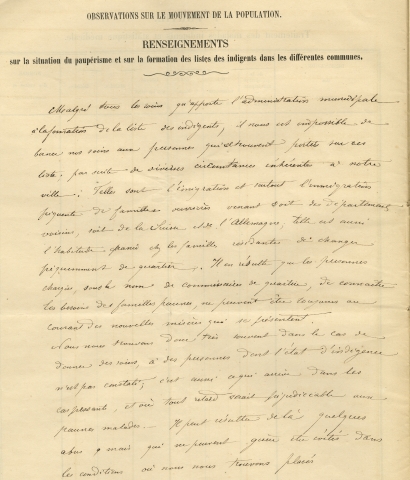 OBSERVATIONS SUR LE MOUVEMENT DE LA POPULATION.
RENSEIGNEMENTS
sur la situation du paupérisme et sur la formation des listes des indigents dans les différentes communes.
Malgré tous les soins qu'apporte l'administration municipale
à la formation de la liste des indigents, il nous est impossible de
nos soins aux personnes qui se trouvent portées sur ces
liste, par suite de diverses circonstances inhérentes à notre
ville : Telles sont l'émigration et surtout l'immigration
fréquente de familles ouvrières venant soit des départements
voisins, soit de la Suisse et de l'Allemagne, telle est aussi
l'habitude chez les familles résidantes de changer
fréquemment de quartier. Il en résulte que les personnes
chargées, sous le nom de commissaires de quartier, de connaître
les besoins des familles pauvres, ne peuvent être toujours au
courant des nouvelles misères qui se présentent.
Nous nous trouvons donc très souvent dans le cas de
donner des soins, à des personnes dont l'état d'indigence
n'est pas constaté; c'est aussi ce qui arrive dans les
cas pressants, et où tout retard serait préjudiciable aux
pauvres malades. Il peut résulter de là quelques
abus qui ne peuvent guère être évités dans
les conditions où nous nous trouvons placés